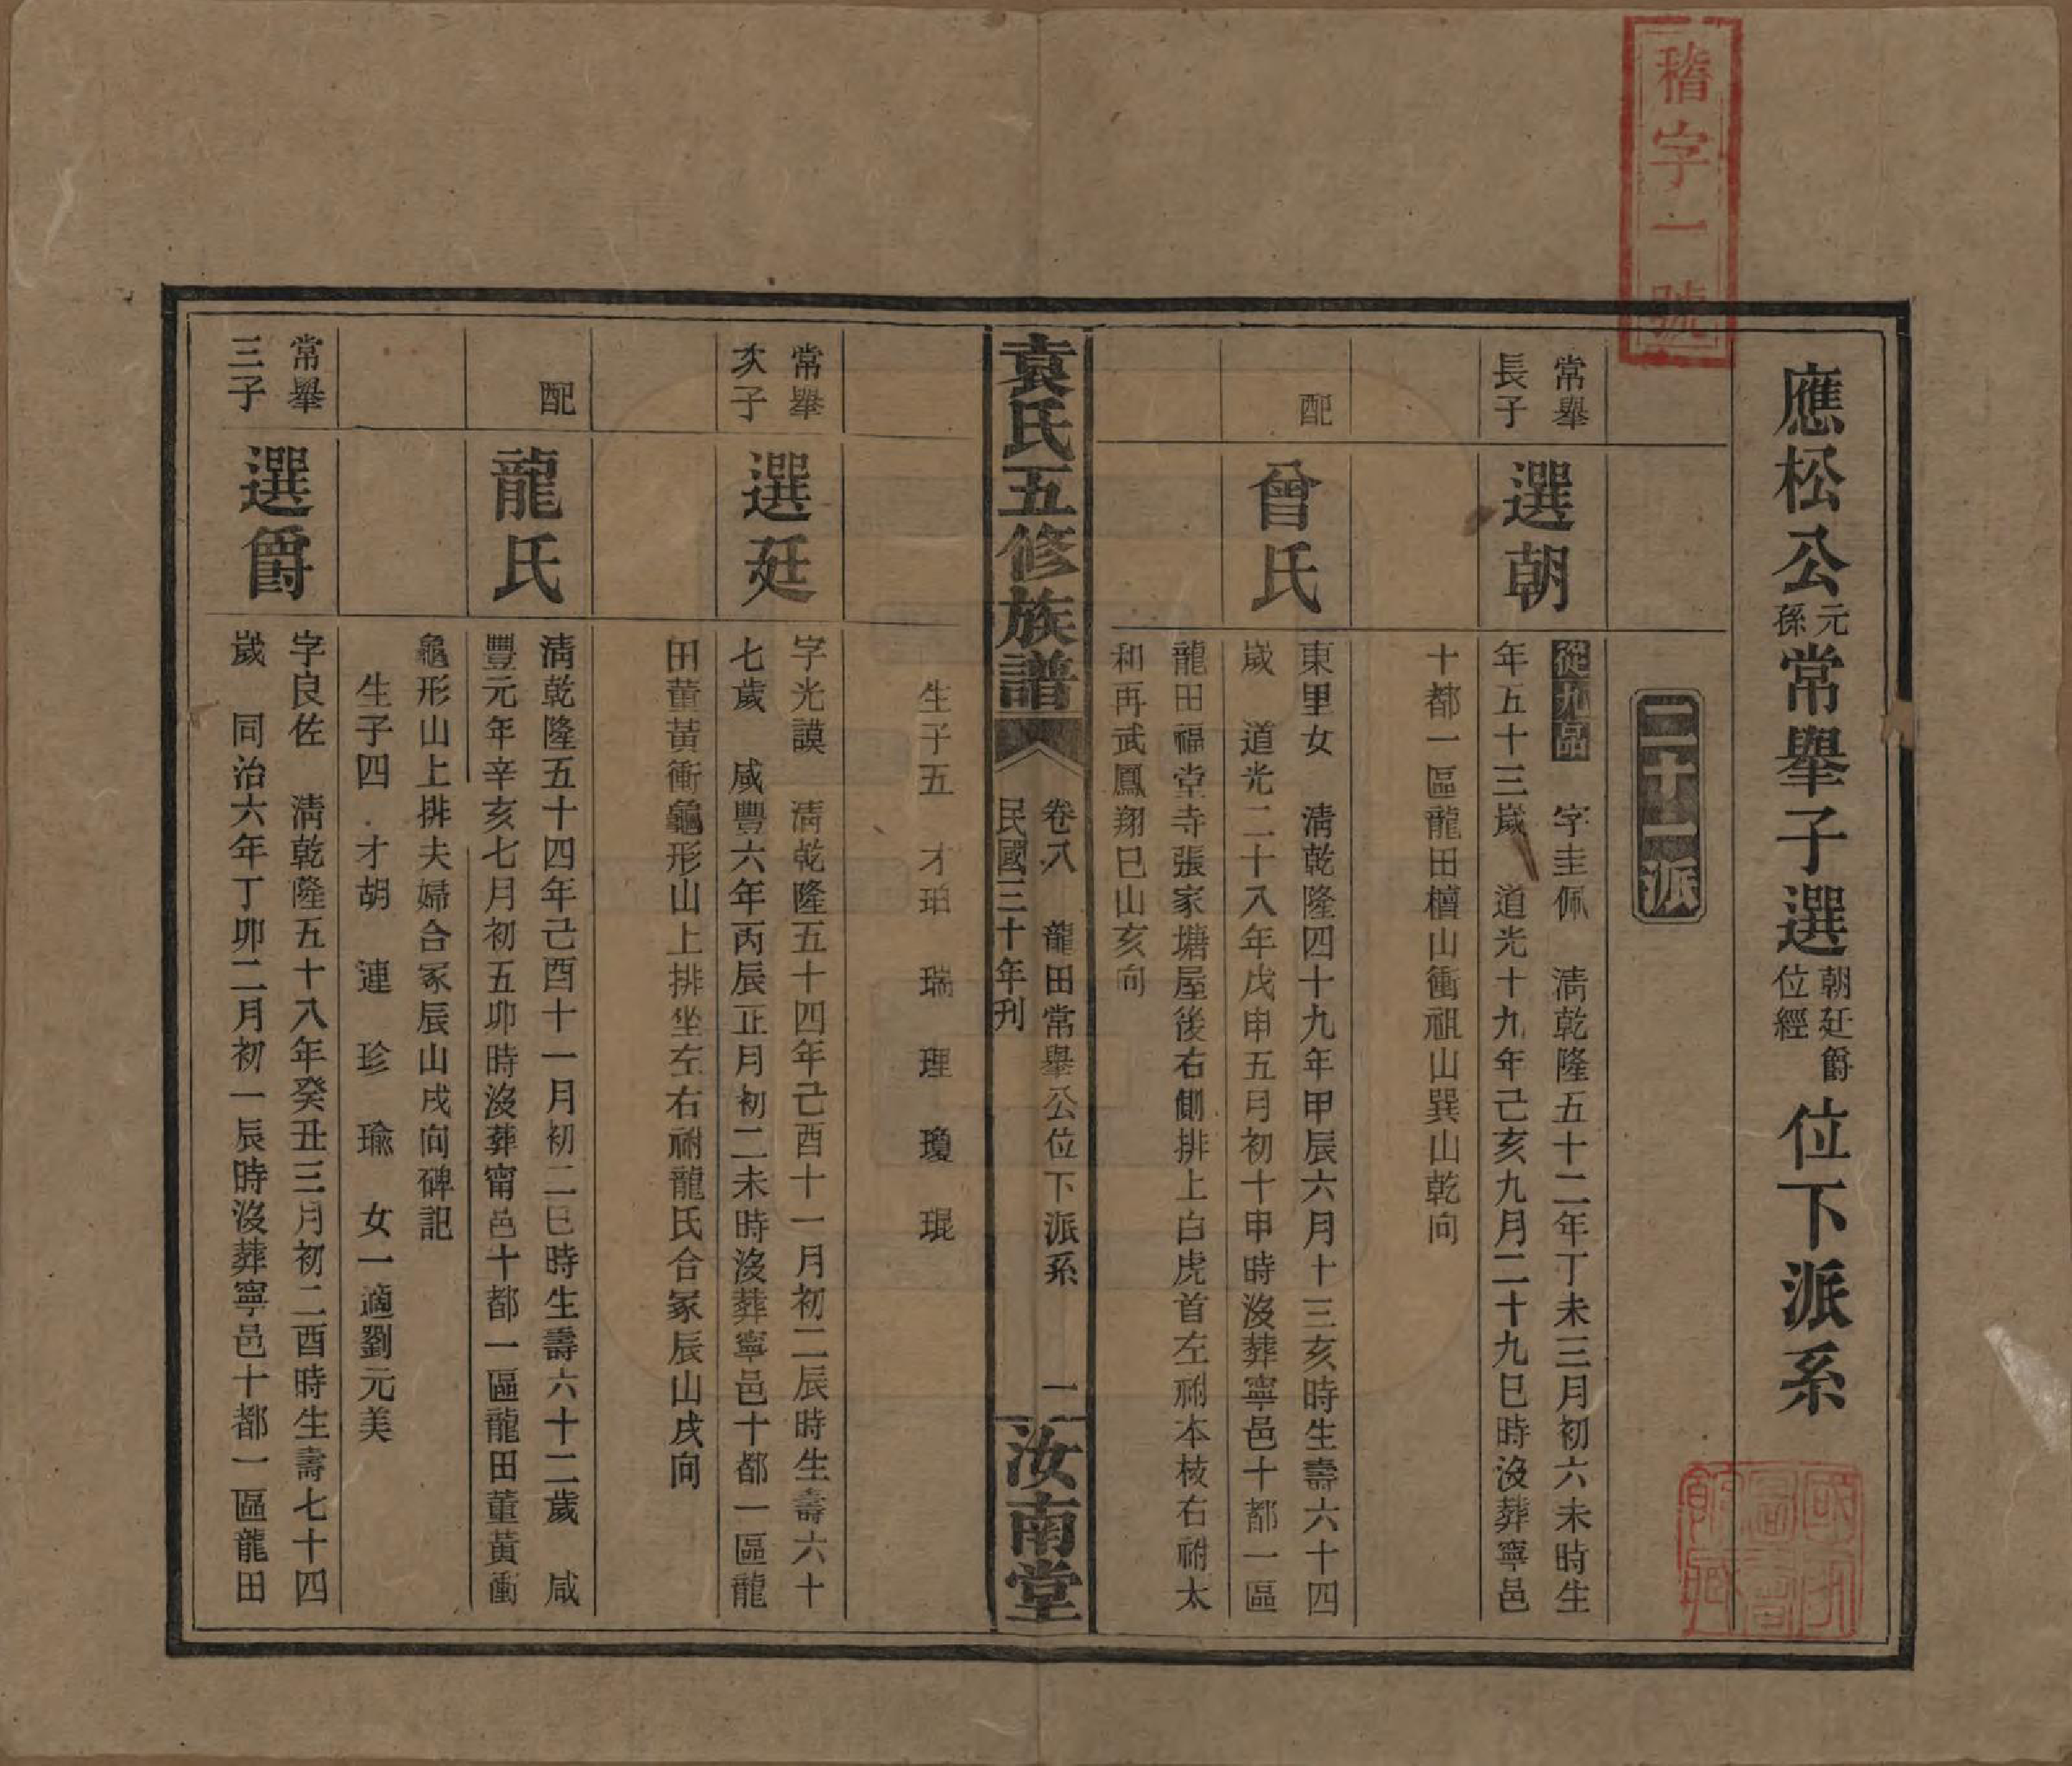 稽字一號
應松公元孫常舉子選朝廷爵位經位下派系
二十一派
常舉長子
選朝
從九品 字圭佩 清乾隆五十二年丁未三月初六未時生
年五十三歲 道光十九年己亥九月二十九巳時沒葬寧邑
十都一區龍田檀山衝祖山巽山乾向
配
曾氏
東里女 清乾隆四十九年甲辰六月十三亥時生壽六十四
歲 道光二十八年戊申五月初十申時沒葬寧邑十都一區
龍田福堂寺張家塘屋後右側排上白虎首左祔本枝右祔太
和再武鳳翔巳山亥向
袁氏五修族譜
卷八 龍田常舉公位下派系 一
民國三十年刊
汝南堂
生子五 才珀 瑞 理 瓊 琨
常舉次子
選廷
字光謨 清乾隆五十四年己酉十一月初二辰時生壽六十
七歲 咸豐六年丙辰正月初二未時沒葬寧邑十都一區龍
田董黃衝龜形山上排坐左右祔龍氏合冢辰山戌向
配
龍氏
清乾隆五十四年己酉十一月初二巳時生壽六十二歲 咸
豐元年辛亥七月初五卯時沒葬甯邑十都一區龍田董黃衝
龜形山上排夫婦合冢辰山戌向碑記
生子四 才胡 連 珍 瑜 女一適劉元美
常舉三子
選爵
字良佐 清乾隆五十八年癸丑三月初二酉時生壽七十四
歲 同治六年丁卯二月初一辰時沒葬寧邑十都一區龍田